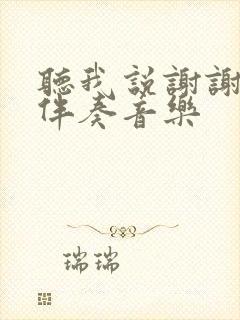 聽我說謝謝
伴奏音樂
瑞瑞